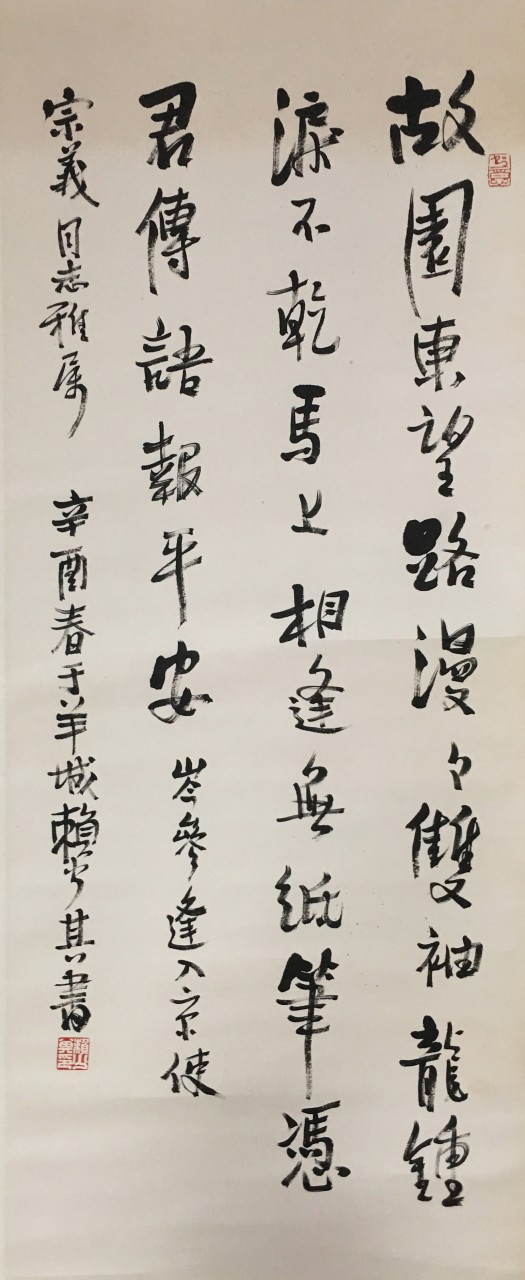 故園東望路漫々雙袖龍鍾
淚不乾馬上相逢無紙筆憑
君傳語報平安 岑參逢入京使
宗義同志雅属 辛酉春于羊城賴少其書